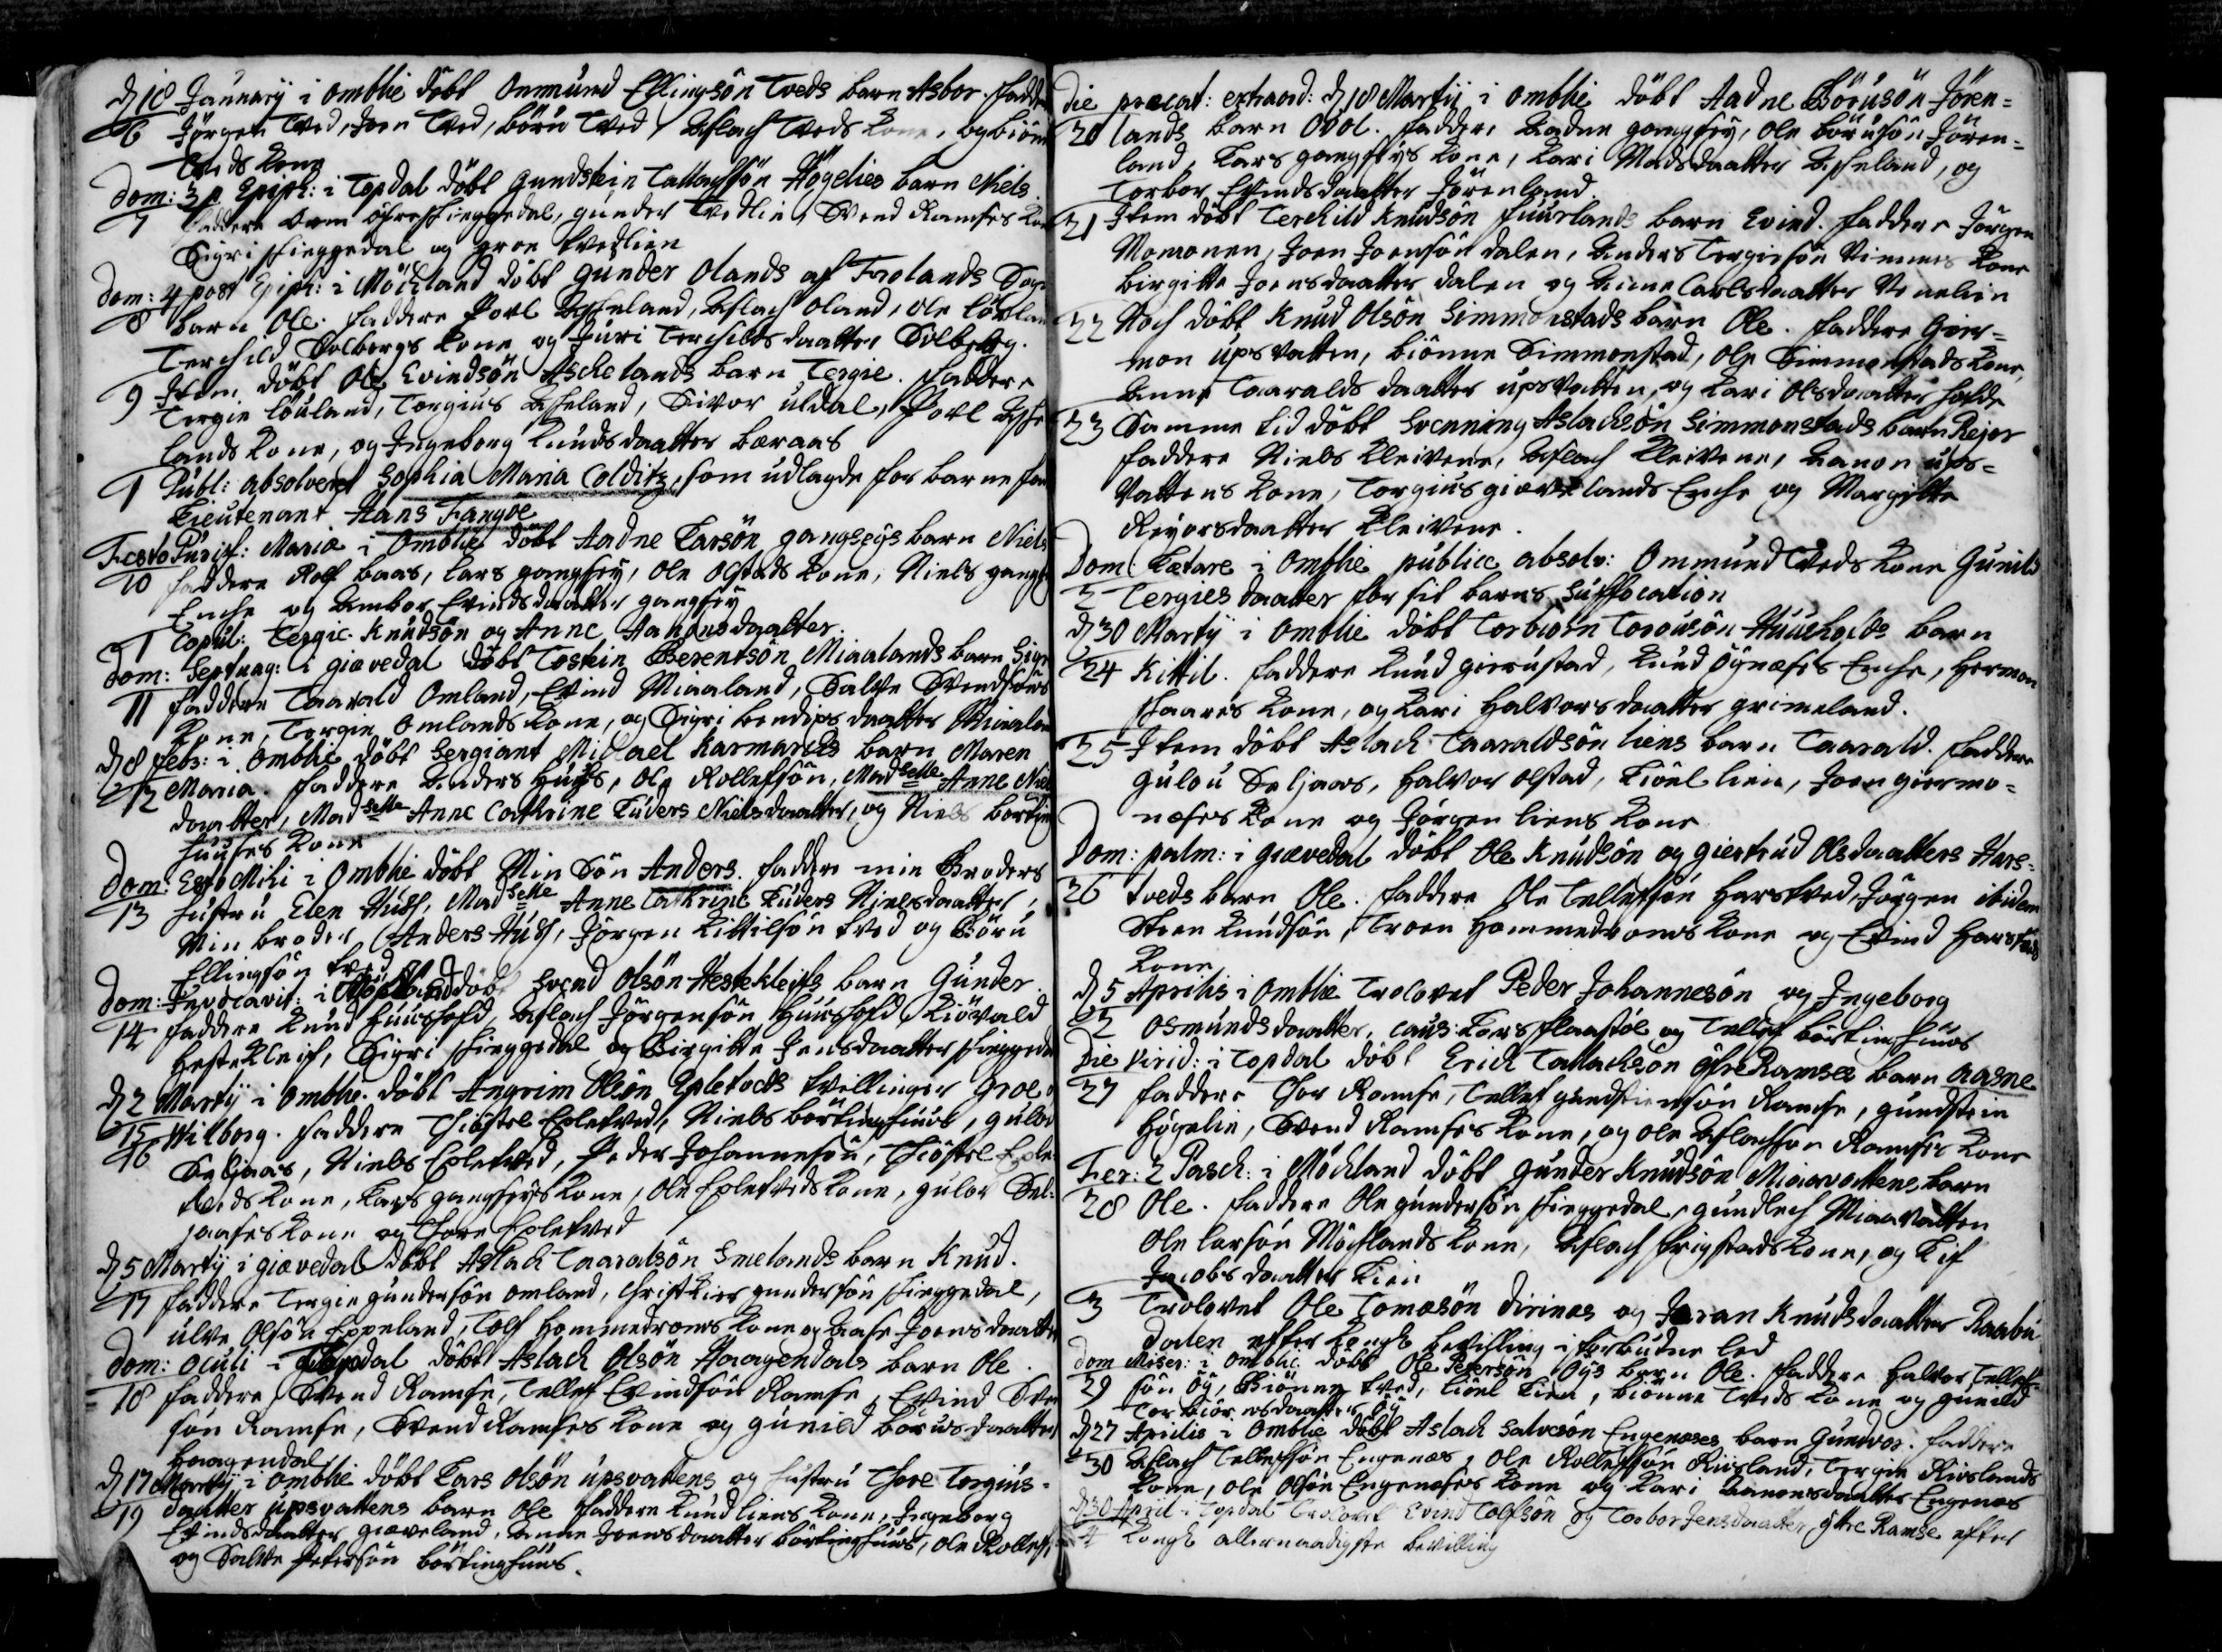 d 18 January i Omblie döbt Onmund Ellingsön Tveds barn Asbor. Fadder
6 Jörgen Tved, Joen Tved, Börü Tved, Aslach Tveds Kone, og Biönn
Tveds Kone
Dom: 3 p. Epiph: i Topdal döbt Gundstein Tallachsön Högelies barn Niels.
7 Faddere öfre Skieggedal, Gunder Tvedlie, Svend Ramses Kone
Sigri Skieggedal og Groe Tvedlien
Dom: 4 post Epiph: i Möckland döbt Gunder Olands af Frolands Sogn
8 barn Ole. Faddere Povl Askeland, Aslach Oland, Ole Lövland
Terchild Solbergs Kone og Juri Terchilds daatter Solberg.
9 Item döbt Ole Evindsön Aschelands barn Tergie. Faddere
Tergie Löuland, Torgius Askeland, Sivor Uldal, Povl Aske
lands Kone, og Ingeborg Knudsdaatter Beraas
1 Publ: absolveret Sophia Maria Colditz, som udlagde for barne fa
Lieutenant Hans Fangoe
Festo Purif: Mariæ i Omblie döbt Aadne Larsön gangseÿs barn Niels
10 Faddere Rolf Baas, Lars gangseÿ, Ole Olstads Kone, Niels gangse
Enche og Ambor Evindsdaatter gangseÿ
1 Copul: Tergie Knudsön og Anne Aanonsdaatter.
Dom: Septuag: i giævedal döbt Tostein Berentsön Miaalands barn Sigri
11 Faddere Taarald Omland, Evind Miaaland, Salve Svendsöns
Kone, Tergie Omlands Kone, og Sigri Bendixdaatter Miaaland
d 8 Febr: i Omblie döbt Sergiant Michael Karmarks barn Maren
12 Maria. Faddere Anders Huss, Ole Rollefsön, Madselle Anne Niels
daatter, Madselle Anne Cathrine Lüders Nielsdaatter, og Niels Börting
huuses Kone
Dom: Esto Mihi i Omblie döbt Min Sön Anders. Faddere min Broders
13 hustru Elen Huss, Madselle Anne Cathrine Lüders Nielsdaatter,
Min broder Anders Huss, Jörgen Kittilsön Tved og Börü
Ellingsön Tved
Dom: Invocavit: i Möckland döbt Svend Olsön Hestekleifs barn Gunder.
14 Faddere Knud Huusfold, Aslach Jörgensön Huusfold, Riövald
Hestekleif, Sigri Skieggedal og Birgitte Jensdaatter Skieggedal
d 2 Martÿ i Omblie döbt Angrim Olsön Epletveds tvillinger Groe o
15 Wilborg. Faddere Thiöstel Epletved, Niels Börtinghuus, Gulov
16 Seljaas, Niels Epletved, Peder Johannesön, Thiöstel Eple-
tveds Kone, Lars gangseÿs Kone, Ole Epletveds Kone, Gulov Sel-
jaases Kone og Thore Epletved
d 5 Martÿ i giævedal döbt Aslach Taaralsön Smelands barn Knud.
17 Faddere Tergie Gundersön Omland, Christen Gundersön Skieggedal,
Ulve Olsön Eppeland, Tolf Hommedroms Kone og Aase Joensdaatter
Dom: Oculi i Topdal döbt Aslach Olsön Haagendals barn Ole.
18 Faddere Svend Ramse, Tellef Evindsön Ramse, Evind Sven
sön Ramse, Svend Ramses Kone og Gunild Börüsdaatter
Haagendal
d 17 Martÿ i Omblie döbt Lars Olsön Upsvattens og hustru Thore Torgius-
19 daatter Upsvattens barn Ole Faddere Knud Liens Kone, Ingeborg
Evindsdaatter giæveland, Anne Joensdaatter Börtinghuus, Ole Rollefs
og Salve Pedersön Börtinghuus.
Die precat: extraord: d 18 Martÿ i Omblie döbt Aadne Börüsön Jören=
20 lands barn Odol. Faddere Aadne gangseÿ, Ole Börüsön Jören=
land, Lars gangseÿs Kone, Kari Madsdaatter Askeland, og
Torbor Evindsdaatter Jörenland
21 Item döbt Terchild Knudsön Fuurlands barn Evind. Faddere Jörgen
Momonen, Joen Joensön Dalen, Anders Tergiesön Vimmes Kone
Birgitte Joensdaatter Dalen og Anne Carlsdaatter Venelien
22 Noch döbt Knud Olsön Simmonstads barn Ole. Faddere Gier=
mon Upsvatten, Biönne Simmonstad, Ole Simmonstads Kone,
Anne Taaralds daatter Upsvatten, og Kari Olsdaatter Fahle
23 Samme tid döbt Svenning Aslachsön Simmonstads barn Rejer
Faddere Niels Kleivene, Aslach Kleivene, Aanon Ups=
vattens Kone, Torgius giævelands Enche og Margitte
Reyersdaatter Kleivene.
Dom: Lætare i Omblie publice absolv: Ommund Tveds Kone Gunild
2 Tergies daatter for sit barns Suffocation
d 30 Martÿ i Omblie döbt Torbiörn Torousön Huusfolds barn
24 Kittil. Faddere Knud gierustad, Knud Öynæses Enche, Hermon
Skaares Kone, og Kari Halvorsdaatter grimeland.
25 Item döbt Aslach Taaraldsön Liens barn Taarald. Faddere
Gulou Seljaas, Halvor Olstad, Kiöel Lien, Joen giermo=
næses Kone og Jörgen Liens Kone
Dom: palm: i giævedal döbt Ole Knudsön og Giertrud Olsdaatters Hars=
26 tveds barn Ole. Faddere Ole Tellefsön Harstved, Jörgen ibidem
Steen Knudsön, Troen Hommedroms Kone og Evind Harstveds
Kone
d 5 Aprilis i Omblie Trolovet Peder Johannesön og Ingeborg
2 Osmundsdaatter, caus: Lars Slaastöl og Tellef Börtinghuus
Die virid: i Topdal döbt Erich Tallachsön Öfre Ramses barn Aasne
27 Faddere Thor Ramse, Tellef Gundsteinsön Ramse, Gundstein
Högelie, Svend Ramses Kone, og Ole Aslachsön Ramses Kone
Fer: 2 Pasch: i Möckland döbt Gunder Knudsön Miaavattens barn
28 Ole. Faddere Ole Gundersön Skieggedal, Gundlech Miaavatten
Ole Larsön Möcklands Kone, Aslach Frigstads Kone, og Lif
Jacobsdaatter Lien
3 Trolovet Ole Tomæsön Dirinæs og Joran Knudsdaatter Raabu
dalen efter Kongl bevilling i forbudne led
Dom Miser: i Omblie döbt Ole Petersön Öys barn Ole. Faddere Halvor Tellef=
29 sön Öÿ, Biönne Tved, Kiöel Lien, Biönne Tveds Kone og Gunild
Torbiörnsdaatter Öÿ
d 27 Aprilis i Omblie döbt Aslach Salvesön Engenæses barn Gundvor. Faddere
30 Aslach Tellefsön Engenæs, Ole Rollefsön Riisland, Tergie Riislands
Kone, Ole Olsön Engenæses Kone og Kari Aanonsdaatter Engenæs
d 30 April i Topdal Trolovet Evind Tolfsön og Torbor Jensdaatter Öfre Ramse efter
4 Kongl allernaadigste bevilling